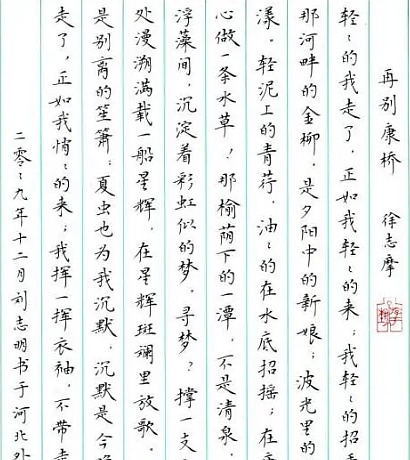 再别康桥 徐志摩
轻〻的我走了，正如我轻〻的来；我轻〻的招
那河畔的金柳，是夕阳中的新娘；波光里的
漾。轻泥上的青荇，油〻的在水底招摇；在
心做一条水草！那榆荫下的一潭，不是清泉，
浮藻间，沉淀着彩虹似的梦。寻梦？撑一支
处漫溯满载一船星辉，在星辉斑斓里放歌。
是别离的笙箫；夏虫也为我沉默，沉默是今
走了，正如我悄〻的来；我挥一挥衣袖，不带
二零〻九年十二月刘志明书于河北外